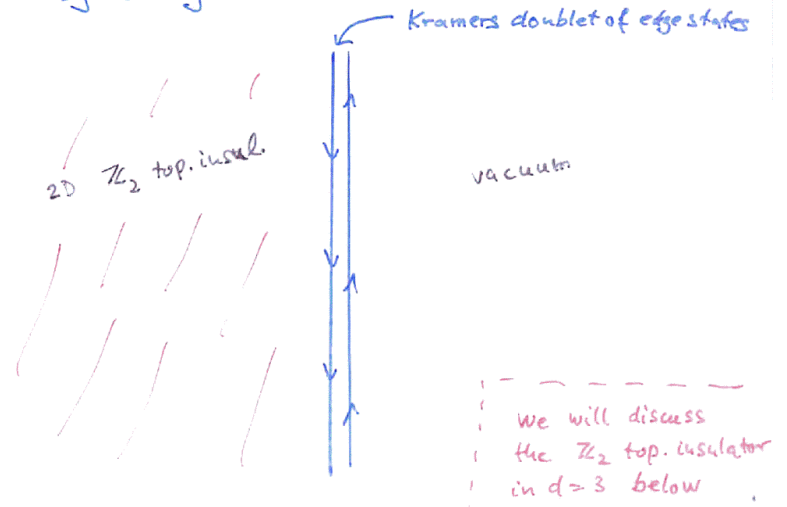 Kramers doublet of edge states
2D ℤ₂ top. insul.
vacuum
we will discuss
the ℤ₂ top. insulator
in d = 3 below